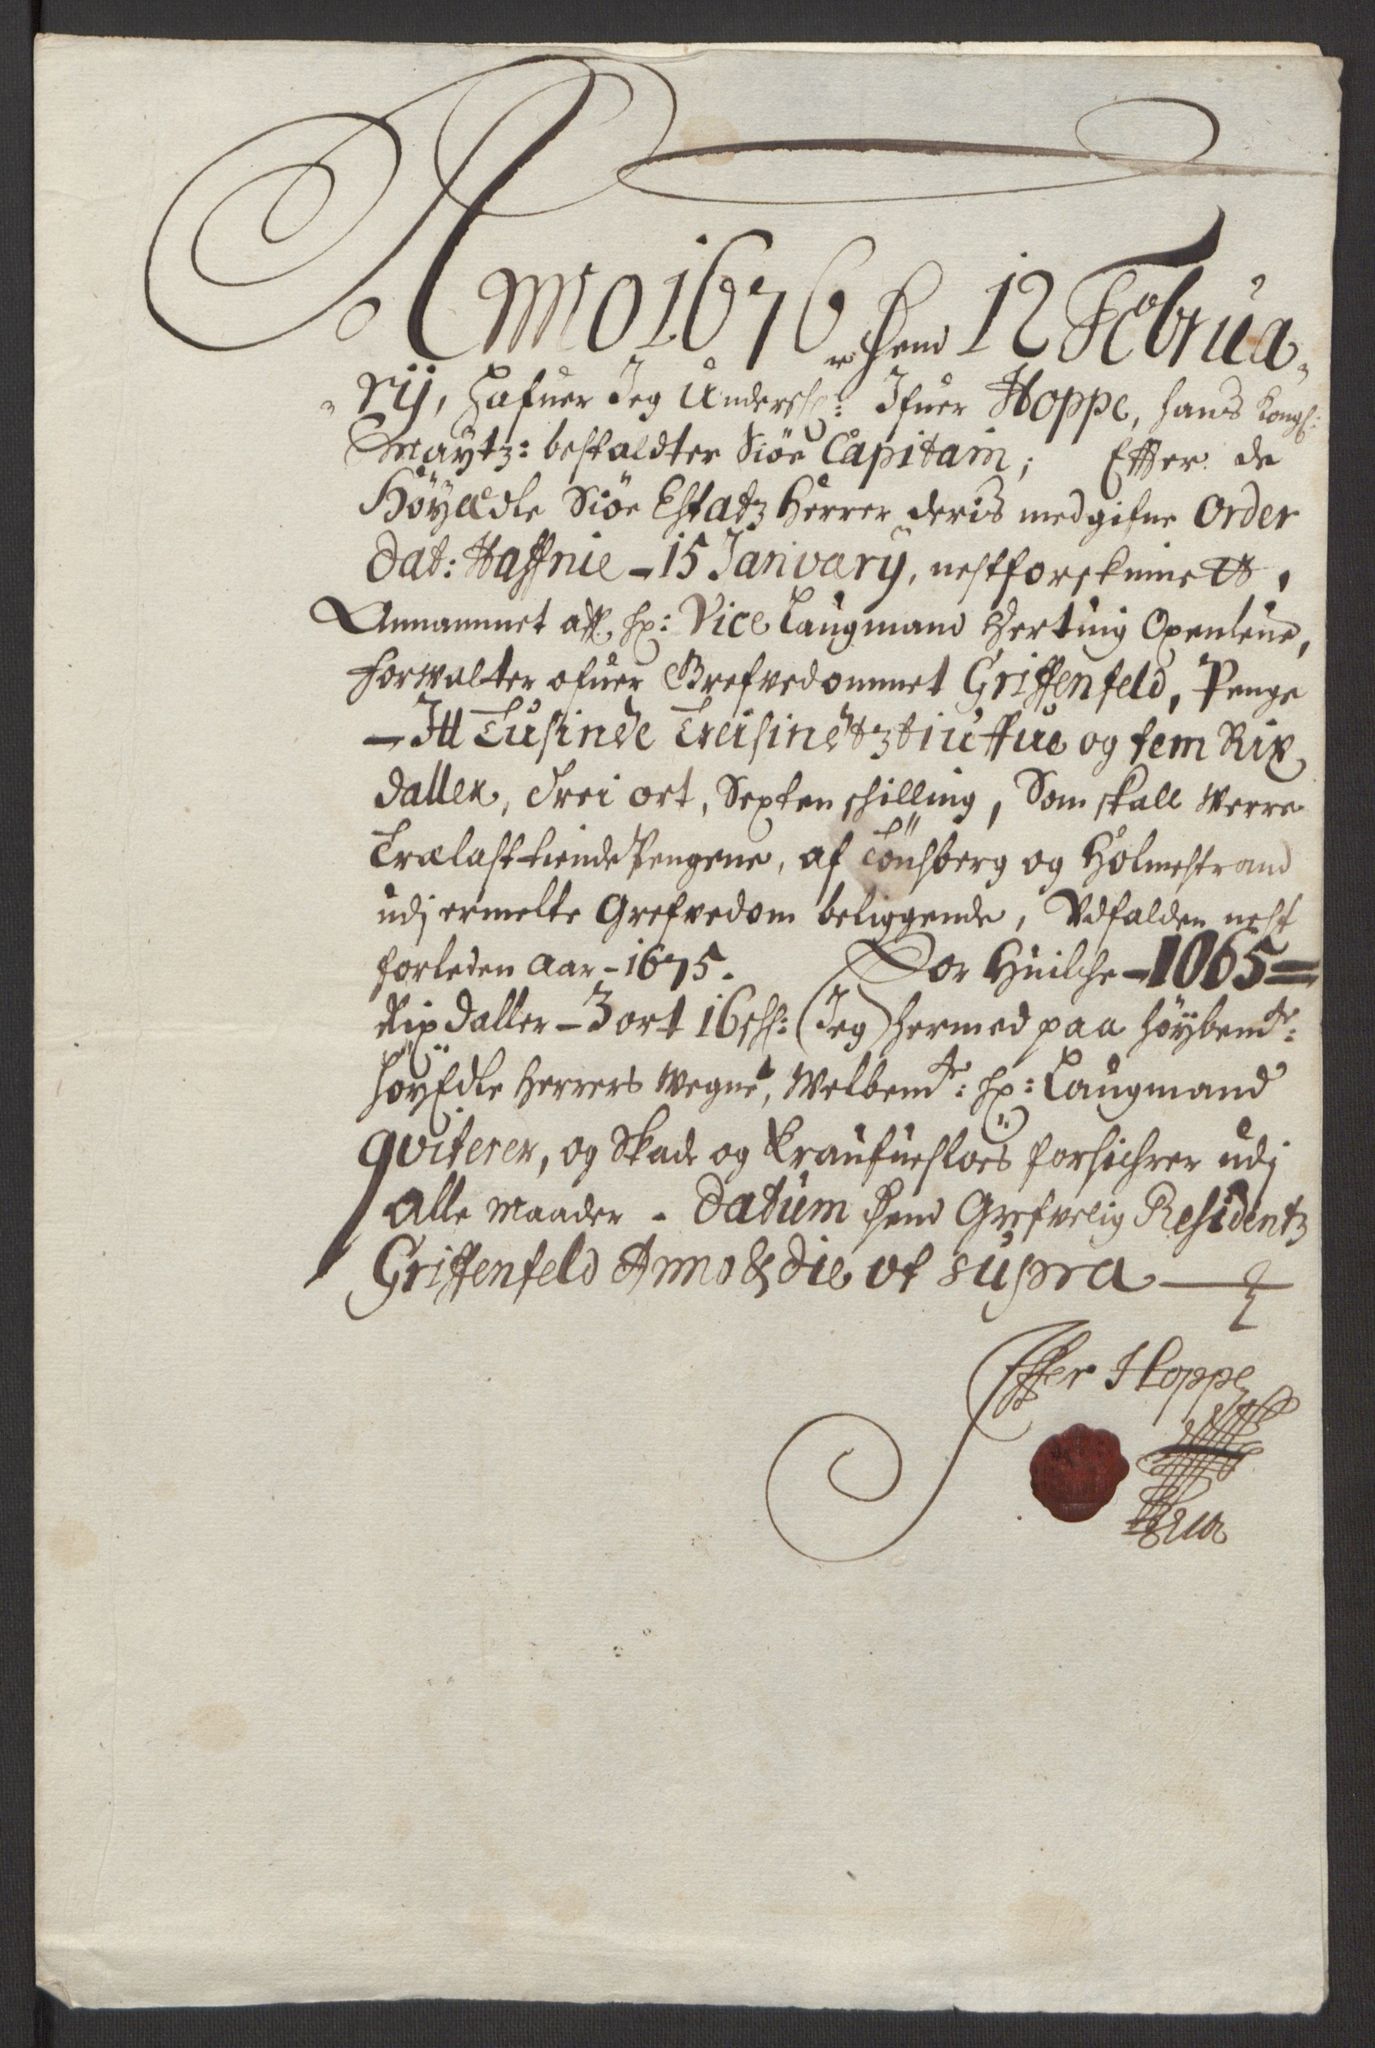 Anno 1676 Dend 12 Februa-
-rij, hafuer Jeg Undersch: Ifuer Hoppe, hans Kongl:
Maytz: bestaldter Siøe Capitain; Effter de
Höyædle Siøe Estatz Herrer deris medgifne Order
Dat: Haffnie - 15 Januarij, nest
Annammet aff, hr: Vice Laugmand Hertuig Openleue,
forwalter ofuer Grefvedommet Griffenfeld, Penge
- Itt Tusinde og fem Rix
daller, trei ort, Sexten schilling, Som skall Werre
Trælast tiende Pengene, af Tönsberg og Holmestrand
udj ermelte Grefvedom beliggende, Udfalden nest
forleden Aar - 1675. For Huilche - 1065 =
Rixdaller - 3 ort 16 sch: (Jeg) hermed paa höybemte:
HöyEdle Herrers Wegne, Welbemte: hr: Laugmand
qviterer, og Skade og Kraufuesløes forsichrer udj
alle Maader - Datum dend Grefvelig Residentz
Griffenfeld Anno & Die ut supra
Iffer Hoppe